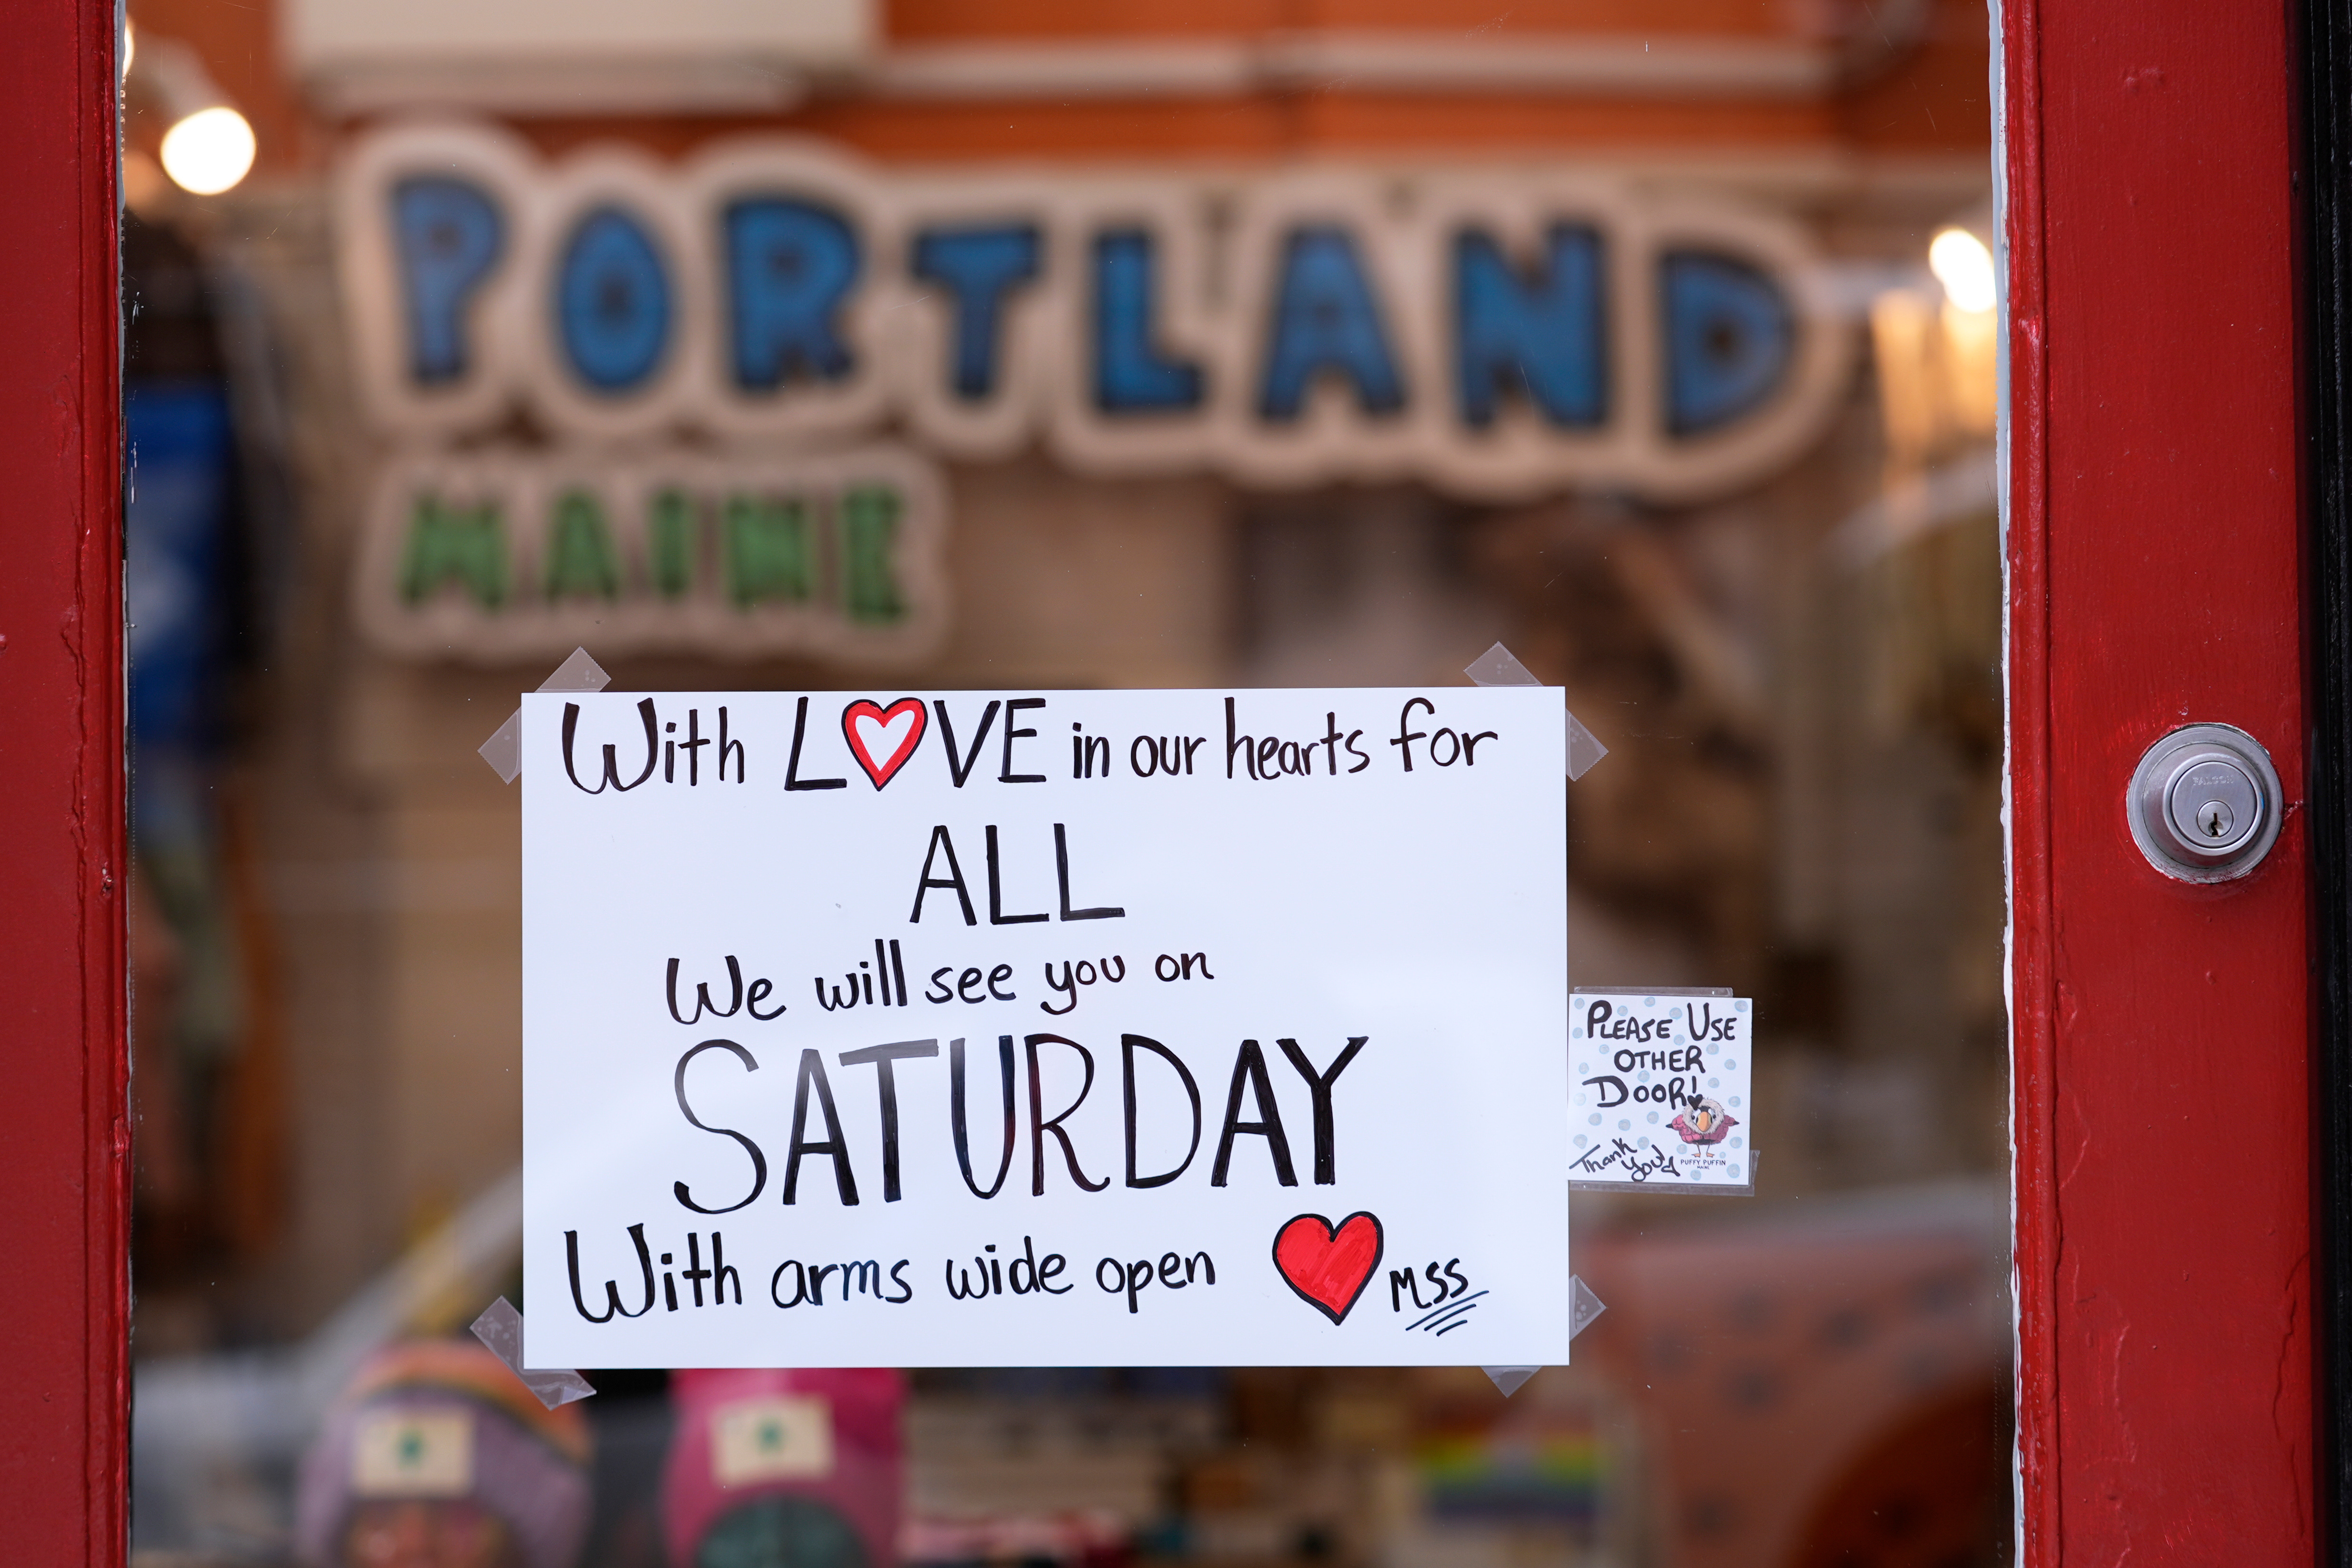 PORTLAND
MAINE
With LOVE in our hearts for
ALL
We will see you on
SATURDAY
With arms wide open MSS
PLEASE USE
OTHER
DOOR!
Thank
you!
PUFFY PUFFIN
MAINE
FALCON